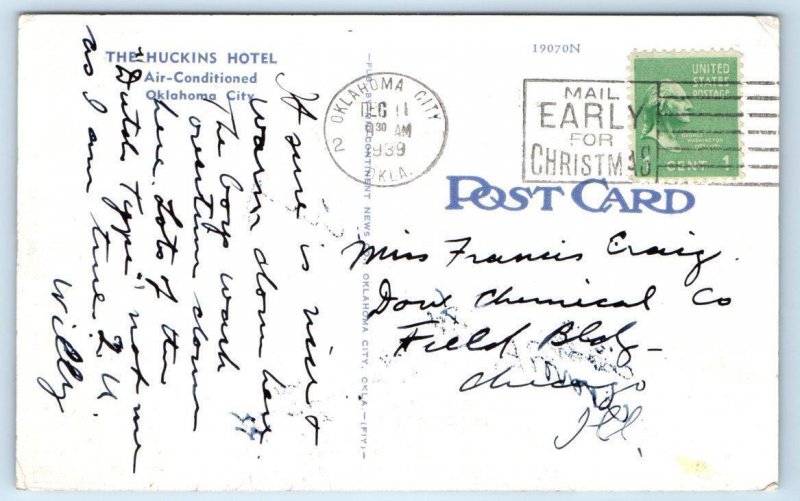 THE HUCKINS HOTEL
Air-Conditioned
Oklahoma City
It sure is nice &
warm down here.
The boys work
overtime down
here. Lots of the
"Dutch Type", not me
as I am true 2 U.
Willy
CONTINENT NEWS
OKLAHOMA CITY, OKLA.
19070N
OKLAHOMA CITY
DEC 11
30 AM
1939
OKLA.
2
MAIL
EARLY
FOR
CHRISTMAS
UNITED
STATES
POSTAGE
GEORGE
WASHINGTON
CENT 1
POST CARD
Miss Francis Craig.
Dow Chemical Co
Field Bldg
Chicago
Ill.